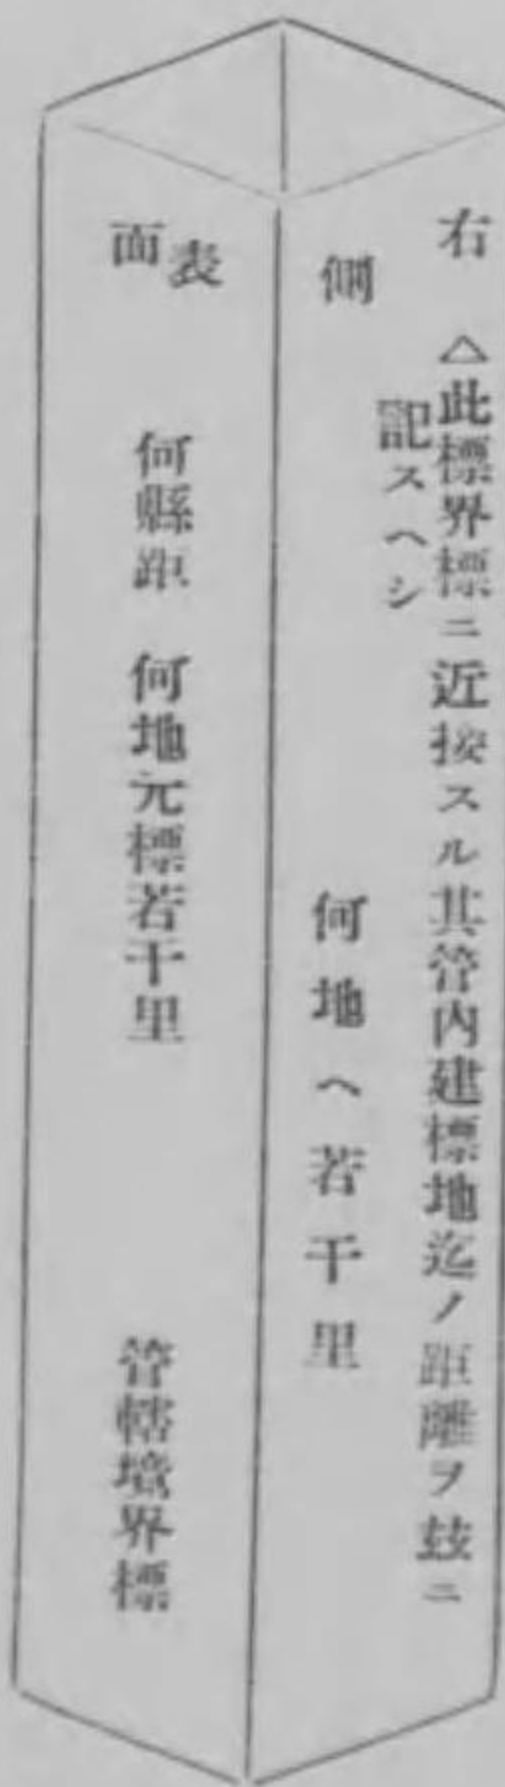 右側
△此標界標ニ近接スル其管内建標地迄ノ距離ヲ玆ニ
記スヘシ
何地ヘ若干里
表面
何縣距 何地元標若干里
管轄境界標